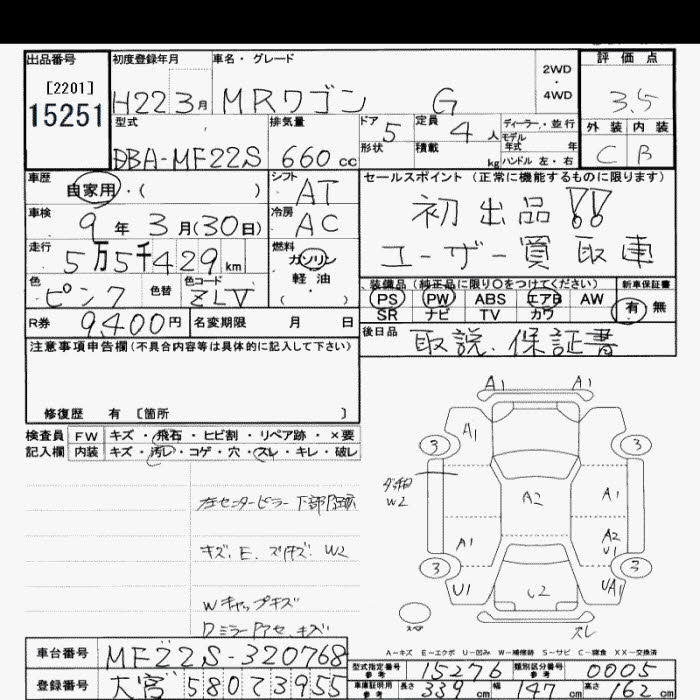 出品番号
[2201]
15251
初度登録年月
H22 3月
車名・グレード
MRワゴン G
2WD
・
4WD
評価点
3.5
外装 内装
C B
型式
DBA-MF22S
排気量
660 cc
ドア 5
形状
定員 4 人
積載 kg
ディーラー・並行
モデル
年式 年
ハンドル 左・右
車歴
自家用・( )
シフト
AT
セールスポイント(正常に機能するものに限ります)
初出品!!
ユーザー買取車
車検
9年 3月(30日)
冷房
AC
走行
5万5千429km
燃料
ガソリン
軽油
・( )
色
ピンク
色替
色コード
ZLV
装備品(純正品に限り〇をつけてください)
PS PW ABS エアB AW
SR ナビ TV カワ
新車保証書
有・無
R券 9,400円
名変期限 月 日
後日品
取説.保証書
注意事項申告欄(不具合内容等は具体的に記入して下さい)
修復歴 有 〔箇所 〕
検査員
記入欄
FW キズ・飛石・ヒビ割・リペア跡・×要
内装 キズ・汚レ・コゲ・穴・スレ・キレ・破レ
左センターピラー下部
キズ、E. W2
Wキャップキズ
キズ
A1 A1
3 A1 3
W2
A2 A1
A1 A2
U1
3 3
U1 U2 UA1
スペア
スレ
A-キズ E-エクボ U-凹み W-補修跡 S-サビ C-腐食 XX-交換済
車台番号 MF22S-320768
登録番号 大宮 580 ア 3955
型式指定番号
参考
15276
類別区分番号
参考
0005
車庫証明用
参考
長さ 339 cm 幅 147 cm 高さ 162 cm